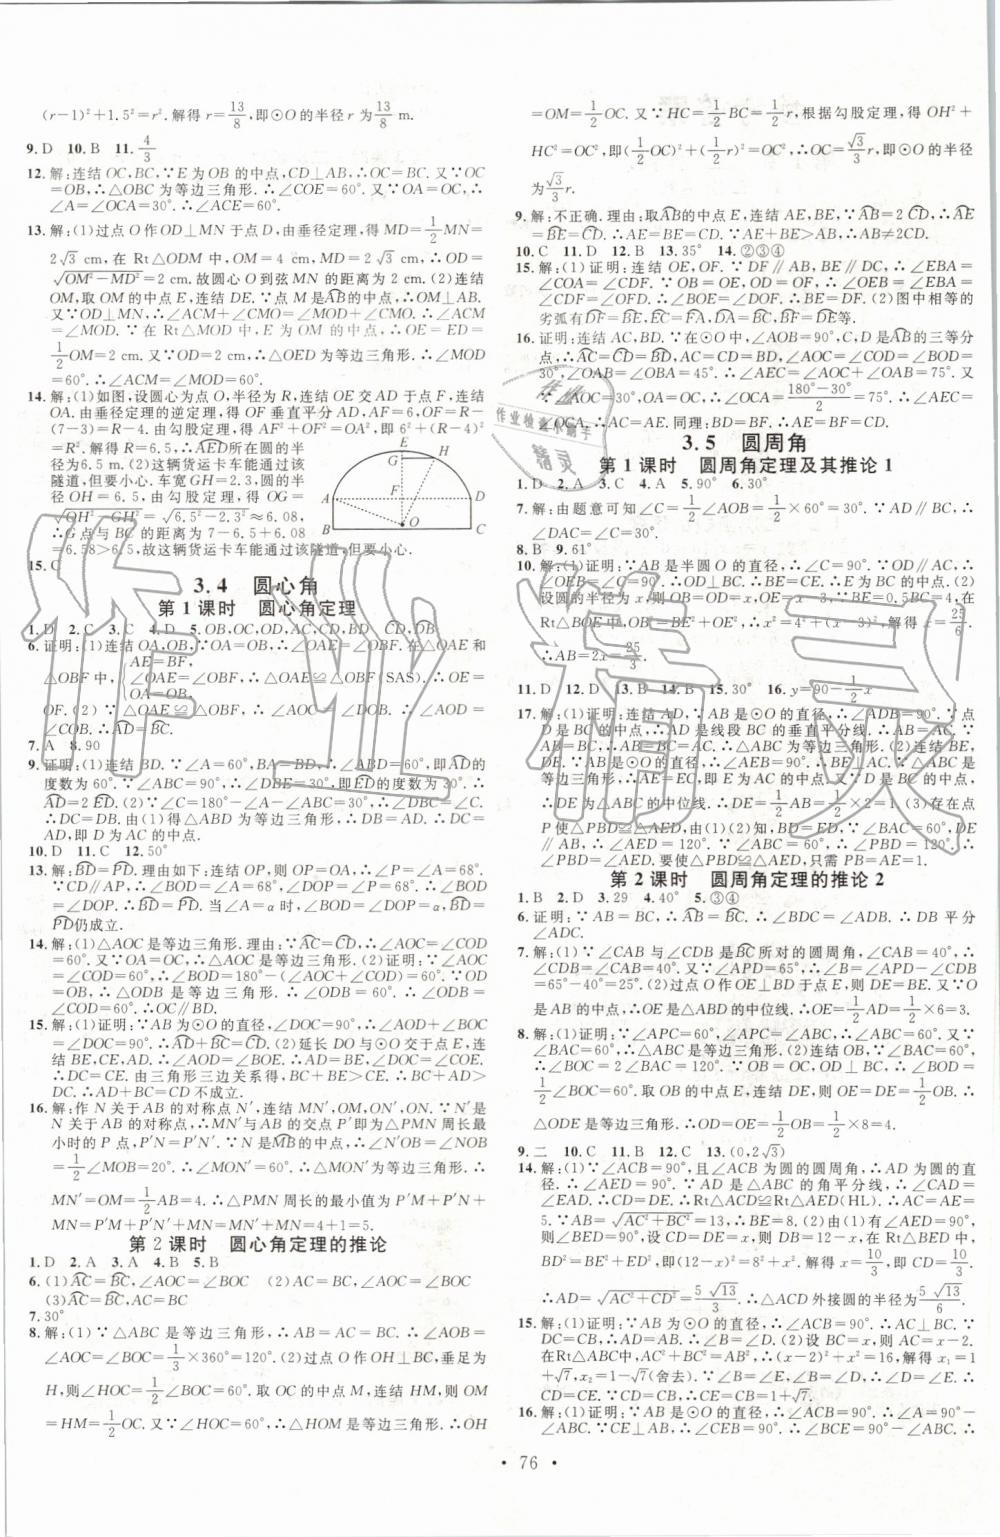 (r-1)²+1.5²=r². 解得 r=13/8,即⊙O的半径 r 为13/8 m.
9. D 10. B 11. 4/3
12. 解:连结 OC,BC,∵E 为 OB 的中点,CD⊥AB,∴OC=BC. 又∵OC
=OB,∴△OBC 为等边三角形. ∴∠COE=60°. 又∵OA=OC,∴
∠A=∠OCA=30°. ∴∠ACE=60°.
13. 解:(1)过点 O 作 OD⊥MN 于点 D,由垂径定理,得 MD=1/2 MN=
2√3 cm,在 Rt△ODM 中,OM=4 cm,MD=2√3 cm,∴OD=
√OM²-MD²=2 cm. 故圆心 O 到弦 MN 的距离为 2 cm. (2)连结
OM,取 OM 的中点 E,连结 DE. ∵点 M 是AB的中点,∴OM⊥AB.
又∵OD⊥MN,∴∠ACM+∠CMO=∠MOD+∠CMO. ∴∠ACM
=∠MOD. ∵在 Rt△MOD 中,E 为 OM 的中点,∴OE=ED=
1/2 OM=2 cm. 又∵OD=2 cm,∴△OED 为等边三角形. ∴∠MOD
=60°. ∴∠ACM=∠MOD=60°.
14. 解:(1)如图,设圆心为点 O,半径为 R,连结 OE 交 AD 于点 F,连结
OA. 由垂径定理的逆定理,得 OF 垂直平分 AD,AF=6,OF=R-
(7-3)=R-4. 由勾股定理,得 AF²+OF²=OA²,即 6²+(R-4)²
=R². 解得 R=6.5,∴AED所在圆
的半径为 6.5. (2)这辆货运卡车能通过该
隧道,但要小心. 车宽 GH=2.3,圆的半
径 OH=6.5,由勾股定理,得 OG=
√OH²-GH²=√6.5²-2.3²≈6.08,
∴点 G 与 BC 的距离为 7-6.5+6.08
=6.58>6.5,故这辆货运卡车能通过该隧道,但要小心.
15. C
3.4 圆心角
第 1 课时 圆心角定理
1. D 2. C 3. C 4. D 5. OB,OC,OD,AC,CD,BD CD,DB
6. 证明:(1)连结 OA,OB,∵OA=OB,∴∠OAE=∠OBF. 在△OAE 和
△OBF 中,{AE=BF, ∠OAE=∠OBF, OA=OB. ∴△OAE≌△OBF(SAS). ∴OE=
OF. (2)∵△OAE≌△OBF,
∴∠DOA=∠COB. ∴AD=BC.
7. A 8. 90
9. 证明:(1)连结 BD. ∵∠A=60°,BA=BD,∴∠ABD=60°,即AD的
度数为 60°. ∵∠ABC=90°,∴∠DBE=30°,即DE的度数为 30°. ∴
AD=2DE. (2)∵∠C=180°-∠A-∠ABC=30°,∴∠DBC=∠C.
∴DC=DB. 由(1)得△ABD 为等边三角形,∴DB=DA. ∴DC=
DA,即 D 为 AC 的中点.
10. D 11. C 12. 50°
13. 解:BD=PD. 理由如下:连结 OP,则 OA=OP,∴∠P=∠A=68°.
∵CD∥AP,∴∠BOD=∠A=68°,∠DOP=∠P=68°. ∴∠BOD
=∠DOP. ∴BD=PD. 当∠A=α 时,∠BOD=∠DOP,∴BD=
PD仍成立.
14. 解:(1)△AOC 是等边三角形. 理由:∵AC=CD,∴∠AOC=∠COD
=60°. 又∵OA=OC,∴△AOC 是等边三角形. (2)证明:∵∠AOC
=∠COD=60°,∴∠BOD=180°-(∠AOC+∠COD)=60°. ∵OD
=OB,∴△ODB 为等边三角形. ∴∠ODB=60°. ∴∠ODB=
∠COD=60°. ∴OC∥BD.
15. 解:(1)证明:∵AB 为⊙O 的直径,∠DOC=90°,∴∠AOD+∠BOC
=90°. ∴AD+BC=CD. (2)延长 DO 与⊙O 交于点 E,连
结 BE,CE,AD. ∵∠AOD=∠BOE,∴AD=BE. ∵∠DOC=90°,
∴DC=CE. 由三角形三边关系,得 BC+BE>CE,∴BC+AD>
DC. ∴AD+BC=CD 不成立.
16. 解:作 N 关于 AB 的对称点 N′,连结 MN′,OM,ON′,OB. ∵N′与
N 关于 AB 的对称点,∴MN′与 AB 的交点 P′即为△PMN 周长最
小时的 P 点,P′N=P′N′. ∵N 是MB的中点,∴∠N′OB=∠NOB
=1/2∠MOB=20°. ∴∠MON′=60°. ∴△MON′为等边三角形. ∴
MN′=OM=1/2 AB=4. ∴△PMN 周长的最小值为 P′M+P′N+
MN=P′M+P′N′+MN=MN′+MN=4+1=5.
第 2 课时 圆心角定理的推论
1. D 2. A 3. C 4. B 5. B
6. (1)AC=BC,∠AOC=∠BOC (2)AC=BC,∠AOC=∠BOC
(3)AC=BC,AC=BC
7. 30°
8. 解:(1)∵△ABC 是等边三角形,∴AB=AC=BC. ∴∠AOB=
∠AOC=∠BOC=1/3×360°=120°. (2)过点 O 作 OH⊥BC,垂足为
H,则∠HOC=1/2∠BOC=60°. 取 OC 的中点 M,连结 HM,则 OM
=HM=1/2 OC. 又∵∠HOC=60°,∴△HOM 是等边三角形. ∴OH
=OM=1/2 OC. 又∵HC=1/2 BC=1/2 r,根据勾股定理,得 OH²+
HC²=OC²,即(1/2 OC)²+(1/2 r)²=OC²,∴OC=√3/3 r,即⊙O的半径
为√3/3 r.
9. 解:不正确. 理由:取AB的中点 E,连结 AE,BE,∵AB=2CD,∴AE
=BE=CD. ∴AE=BE=CD. ∵AE+BE>AB,∴AB≠2CD.
10. C 11. D 12. B 13. 35° 14. ②③④
15. 解:(1)证明:连结 OE,OF. ∵DF∥AB,BE∥AC,∴∠EBA=
∠COA=∠CDF. ∴BE=DF. (2)图中相等的
劣弧有DF=BE,EC=FA,DA=BC,BD=DF=BE等.
16. 证明:连结 AC,BD. ∵在⊙O 中,∠AOB=90°,C,D 是AB的三等分
点,∴AC=CD=BD,
30°,∠OAB=∠OBA=45°. ∴∠AEC=∠AOC+∠OAB=75°.
又∵∠AOC=30°,OA=OC,∴∠OCA=(180°-30°)/2=75°. ∴∠AEC=
∠OCA. ∴AC=AE. 同理:BD=BF. ∴AE=CD=BF.
3.5 圆周角
第 1 课时 圆周角定理及其推论 1
1. D 2. A 3. C 4. A 5. 90° 6. 30°
7. 解:由题意可知∠C=1/2∠AOB=1/2×60°=30°. ∵AD∥BC,∴
∠DAC=∠C=30°.
8. B 9. 61°
10. 解:(1)证明:∵AB 是⊙O 的直径,∴∠C=90°. ∵OD∥AC,∴
∠OEB=∠C=90°. ∴OD⊥BC. ∴BD=CD. (2)
设圆的半径为 x,则 OB=OD=x,OE=x-3. ∵BE=0.5BC=4,在
Rt△BOE 中,OB²=BE²+OE²,∴x²=4²+(x-3)²,解得 x=25/6.
∴AB=2x=25/3.
11. D 12. D 13. B 14. B 15. 30° 16. y=90-1/2 x
17. 解:(1)证明:连结 AD,∵AB 是⊙O 的直径,∴∠ADB=90°. ∵点
D 是 BC 的中点,∴AD 是线段 BC 的垂直平分线. ∴AB=AC. ∵
AB=BC,∴AB=BC=AC. ∴△ABC 为等边三角形. (2)连结 BE,
DE. ∵AB 是⊙O 的直径,∴∠AEB=90°. ∴BE⊥AC. ∵△ABC 是
等边三角形,∴AE=EC,即 E 为 AC 的中点. 又∵D 是 BC 的中点,
∴DE 为△ABC 的中位线. ∴DE=1/2 AB=1/2×2=1. (3)存在点
P 使△PBD≌△AED,由(1)(2)知,BD=ED,∵∠BAC=60°,
∠PBD=∠AED. 要使△PBD≌△AED,只需 PB=AE=1.
第 2 课时 圆周角定理的推论 2
1. B 2. D 3. 29 4. 40° 5. ③④
6. 证明:∵AB=BC,∴AB=BC. ∴∠BDC=∠ADB. ∴DB 平分
∠ADC.
7. 解:(1)∵∠CAB 与∠CDB 是BC所对的圆周角,∠CAB=40°,∴
∠CDB=∠CAB=40°. 又∵∠APD=65°,∴∠B=∠APD-∠CDB
=65°-40°=25°. (2)过点 O 作 OE⊥BD 于点 E,则 DE=BE. 又∵O
是 AB 的中点,∴OE 是△ABD 的中位线. ∴OE=1/2 AD=1/2×6=3.
8. 解:(1)证明:∵∠APC=60°,∠APC=∠ABC,∴∠ABC=60°. 又∵
∠BAC=60°,∴△ABC 是等边三角形. (2)连结 OB,∵∠BAC=60°,
∴∠BOC=2∠BAC=120°. ∵OB=OC,OD⊥BC,∴∠BOD=
1/2∠BOC=60°. 取 OB 的中点 E,连结 DE,则 OE=DE=1/2 OB. ∴
△ODE 是等边三角形. ∴OD=OE=1/2 OB=1/2×8=4.
9. 二 10. C 11. B 12. C 13. (0,2√3)
14. 解:(1)证明:∵∠ACB=90°,且∠ACB 为圆的圆周角,∴AD 为圆的直
径. ∴∠AED=90°. ∵AD 是△ABC 的角平分线,∴∠CAD=
∠EAD. ∴CD=ED. ∴Rt△ACD≌Rt△AED(HL). ∴AC=AE=
5. ∵AB=√AC²+BC²=13,∴BE=8. (2)设 ED=CD=x,
则 BD=12-x. ∵∠AED=90°,∴∠BED=90°. 在 Rt△BED 中,
BD²=BE²+DE²,即(12-x)²=8²+x²,解得 x=10/3,即 CD=10/3.
∴AD=√AC²+CD²=5√13/3. ∴△ACD 外接圆的半径为5√13/6.
15. 解:(1)证明:∵AB 为⊙O 的直径,∴∠ACB=90°. ∴AC⊥BC. ∵
(2)设 BC=x,则 AC=x-2.
在Rt△ABC中,AC²+BC²=AB²,∴(x-2)²+x²=16,解得 x₁=1
+√7,x₂=1-√7(舍去).
CD=CB,∴CE=CB=1+√7.
16. 解:(1)证明:∵AB 是⊙O 的直径,∴∠ACB=90°. ∴∠A=90°-
∠ABC. ∵CE⊥AB,∴∠CEB=90°. ∴∠ECB=90°-∠ABC. ∴
• 76 •